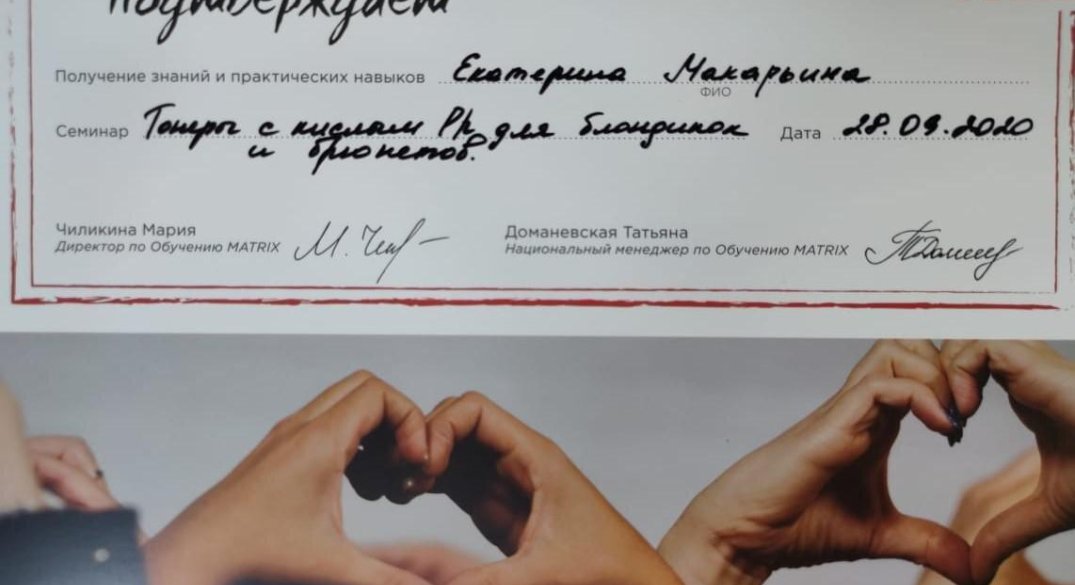 подтверждает
Получение знаний и практических навыков Екатерина Макарьина
ФИО
Семинар Тонеры с кислым Ph для блондинок Дата 28.09.2020
и брюнетов.
Чиликина Мария
Директор по Обучению MATRIX
Доманевская Татьяна
Национальный менеджер по Обучению MATRIX